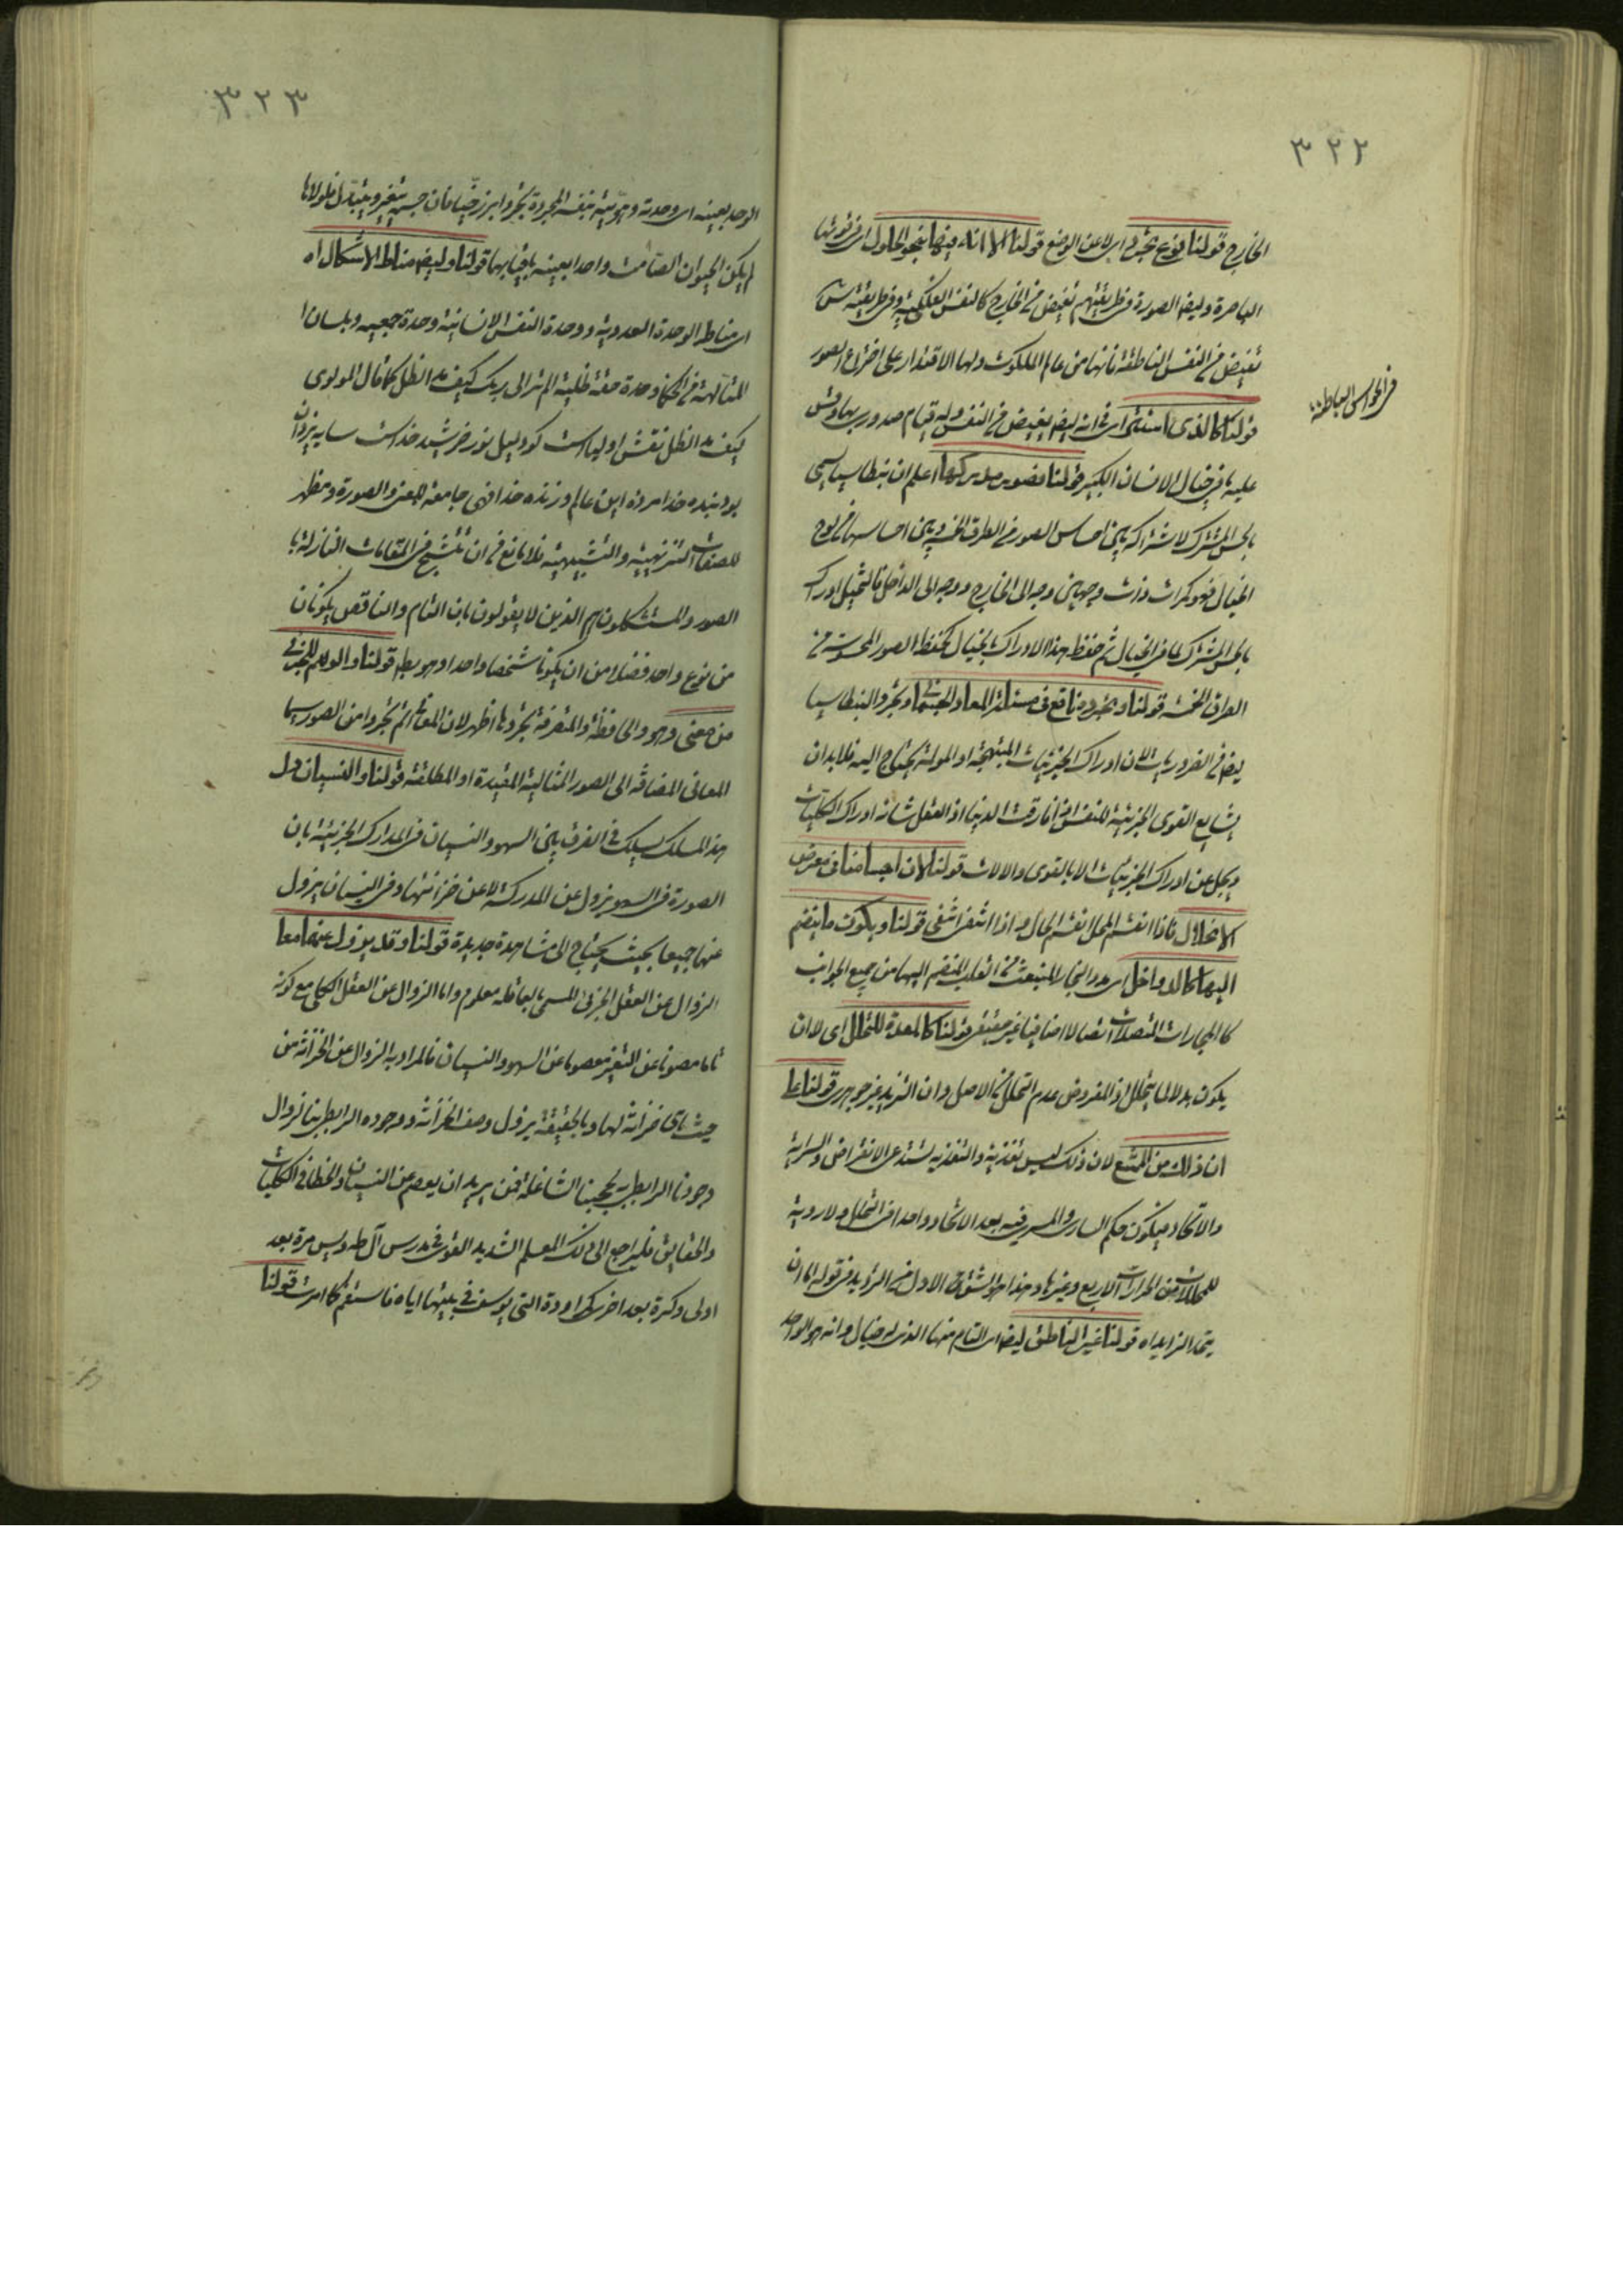 ٣٢٢
الخارج قولنا بنوع تجرد اى لا عن الوضع قولنا الا انه فيها بنحو الحلول اى فى قوتها
الباصرة وايضا الصورة فى طريقتهم تفيض من الخارج كالنفس الفلكية وفى طريقته س
تفيض من النفس الناطقة فانها من عالم الملكوت ولها الاقتدار على اختراع الصور
قولنا كالذى استثنى اى فى انه ايضا يفيض من النفس وله قيام صدورى بها وقس
فى الحواس الباطنة
عليه ما فى خيال الانسان الكبير قولنا فصور مدركها اعلم ان بنطاسيا سمى
بالحس المشترك لاشتراكه بين احساس الصور من الطرق الخمسة وبين احساسها من لوح
الخيال فهو كمرات ذات وجهين وجه الى الخارج ووجه الى الداخل فالتخيل ادراك
بالحس المشترك لما فى الخيال ثم حفظ هذا الادراك بالخيال كحفظ الصور المحسوسة من
الطرق الخمسة قولنا وتجرده نافع فى مسئلة المعاد الجسمانى وتجرد البنطاسيا
ايضا من الضروريات لان ادراك الجزئيات المبتهجة او المولمة يحتاج اليه فلا بد ان
يشايع القوى الجزئية للنفس اذا فارقت الدنيا اذ العقل شانه ادراك الكليات
ويجل عن ادراك الجزئيات الا بالقوى والالات قولنا لان اجسامنا فى معرض
الانحلال فاذا انقسم المحل انقسم الحال واذا انتفى انتفى قولنا ويكون ما ينضم
اليها كالدواخل اى البخار المنبعث من القلب المنضم اليها من جميع الجوانب
كالبخارات المتصلات اتصالا اضافيا غير قولنا كالمعدة للتحلل اى لا ان
يكون بدلا لما يتحلل اذ المفروض عدم التحلل فى الاصل وان التزيد غير جوهرى قولنا على
ان ذلك من الممتنع لان ذلك ليس تغذية والتغذية تستدعى الانقراض والسراية
والاتحاد فيكون حكم السارى والمسرى فيه بعد الاتحاد واحدا فى التحلل ولا روية
للمحللات من الحرارات الاربع وغيرها وهذا هو الشق الاول من الترديد فى قوله اما ان
يتحد الزايد اه قولنا غير الناطق ايضا اى التام منها الذى له خيال وانه هو الواحد
٣٢٣
الوحد بعينه اى وحدته وهويته بنفسه المجردة تجردا برزخيا فان جسمه يتغير ويتبدل فلولاها
لم يكن الحيوان الصامت واحدا بعينه باقيا بها قولنا وليس مناط الاشكال اه
اى مناط الوحدة العددية ووحدة النفس الانسانية وحدة جمعية وبلسان
المتألهة من الحكماء وحدة حقة ظلية الم تر الى ربك كيف مد الظل كما قال المولوى
كيف مد الظل نقش اولياست كو دليل نور خورشيد خداست سايه يزدان
بود بنده خدا مرده اين عالم وزنده خدا فهى جامعة للمعنى والصورة ومظهر
للصفات التنزيهية والتشبيهية فلا مانع من ان تتشبح فى المقامات النازلة با
الصور والمستشكلون هم الذين لا يقولون بان التام والناقص يكونان
من نوع واحد فضلا من ان يكونا شخصا واحدا وهو بط قولنا والوهم للجزئى
من معنى وهو والحافظة والمتصرفة تجردها اظهر لان المعانى اتم تجردا من الصور سيما
المعانى المضافة الى الصور المثالية المقيدة او المطلقة قولنا والنسيان دل
هذا المسلك يسلك فى الفرق بين السهو والنسيان فى المدارك الجزئية بان
الصورة فى السهو يزول عن المدركة لا عن خزانتها وفى النسيان يزول
عنها جميعا بحيث يحتاج الى مشاهدة جديدة قولنا وقد يزول عنهما معا
الزوال عن العقل الجزئى المسمى بالعاقله معلوم واما الزوال عن العقل الكلى مع كونه
تاما مصونا عن التغير معصوما عن السهو والنسيان فالمراد به الزوال عن الخزانة من
حيث هى خزانة لها وبالحقيقة يزول وصف الخزانة ووجوده الرابطى بنا لزوال
وجودنا الرابطى به بحجبنا الشاغلة فمن يريد ان يعصم من النسيان والخطا فى الكليات
والحقايق فليراجع الى ذلك المعلم الشديد القوى فى مدرس آل طه ويس مرة بعد
اولى وكرة بعد اخرى كمراودة التى يوسف فى بيتها اياه فاستقم كما امرت قولنا